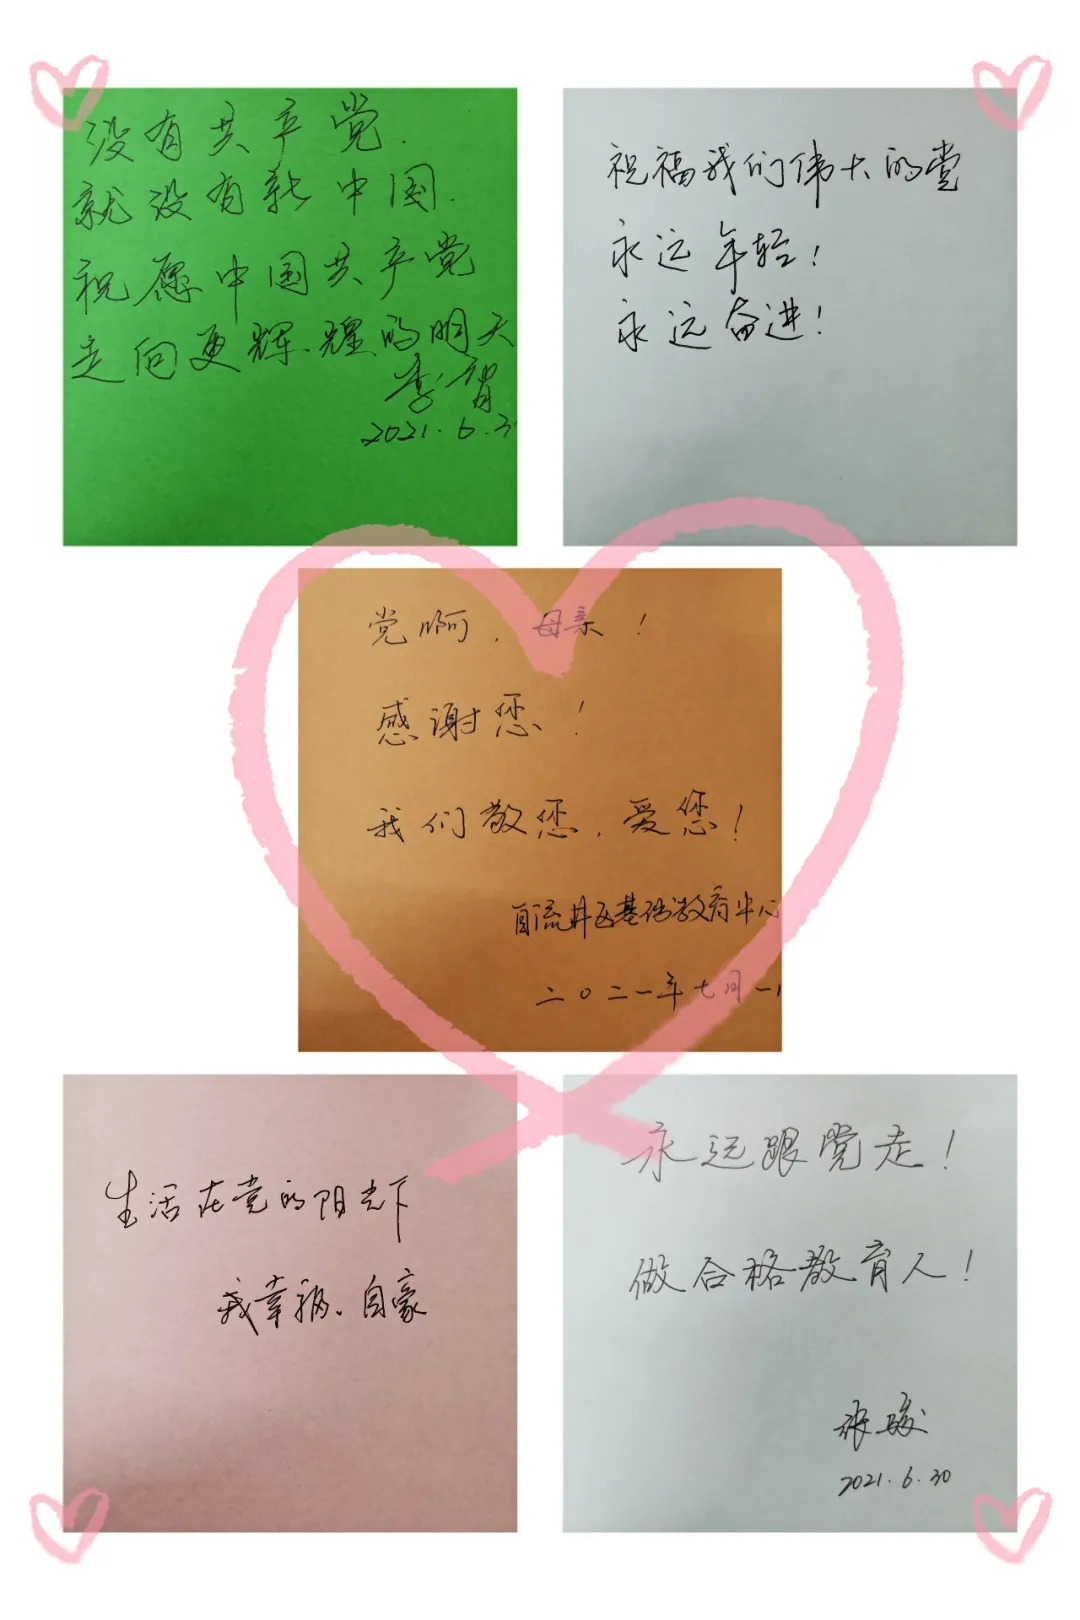 没有共产党.
就没有新中国.
祝愿中国共产党
走向更辉煌的明天
李
2021.6.3
祝福我们伟大的党
永远年轻!
永远奋进!
党啊,母亲!
感谢您!
我们敬您,爱您!
自流井区基础教育中心
二〇二一年七月一
生活在党的阳光下
我幸福、自豪
永远跟党走!
做合格教育人!
张骏
2021.6.30